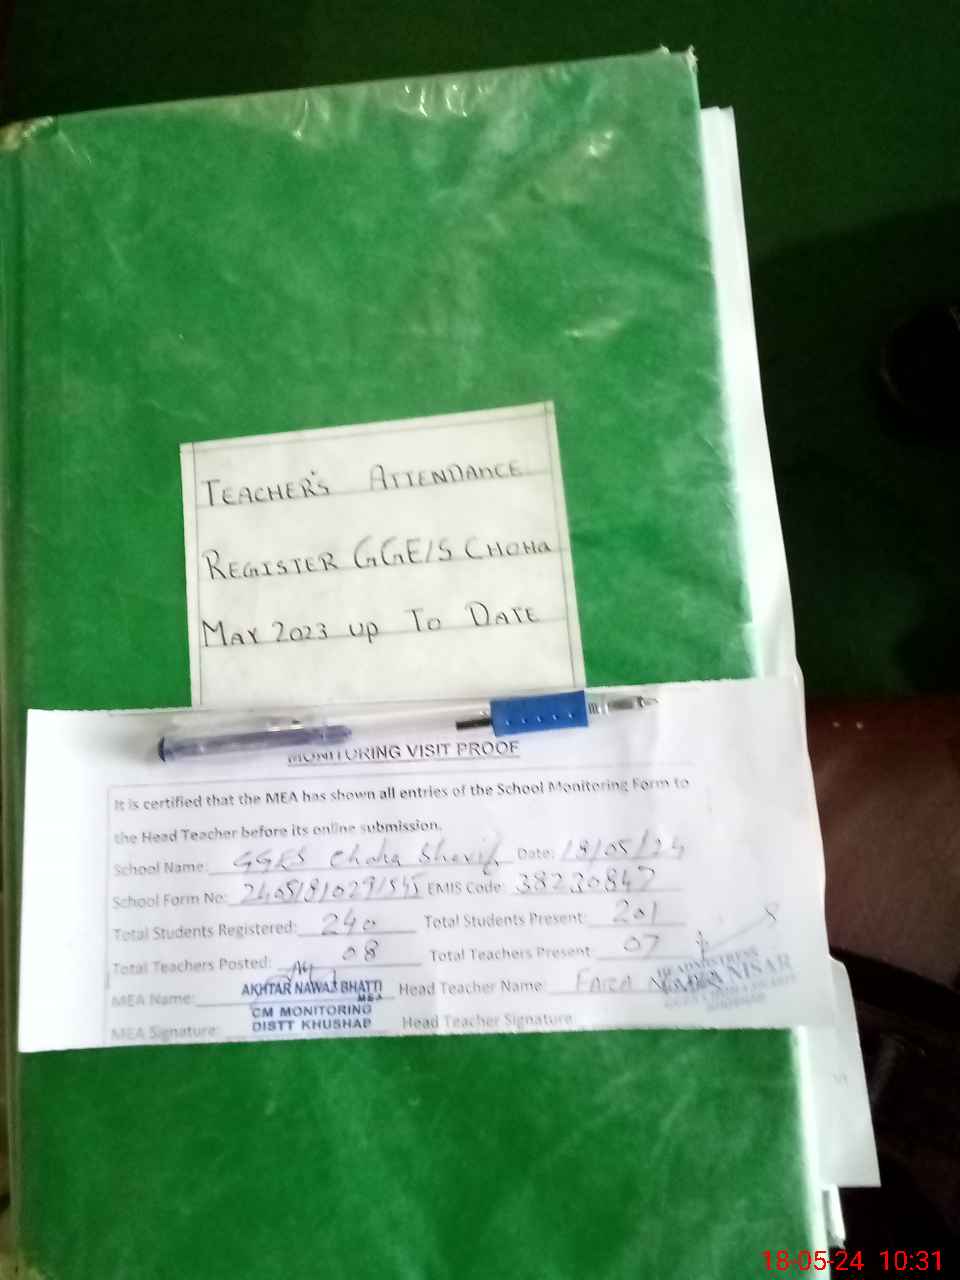 TEACHER'S ATTENDANCE
REGISTER GGE/S CHOHa
MAY 2023 up To DATE
MONITORING VISIT PROOF
It is certified that the MEA has shown all entries of the School Monitoring Form to
the Head Teacher before its online submission.
School Name: GGES Choha Sharif Date: 18/05/24
School Form No: EMIS Code: 38230847
Total Students Registered: 240 Total Students Present: 201
Total Teachers Posted: 08 Total Teachers Present: 07
MEA Name: AKHTAR NAWAZ BHATTI Head Teacher Name: FAIZA
MEA
CM MONITORING
MEA Signature: DISTT KHUSHAB Head Teacher Signature
HEADMISTRESS
NISAR
18-05-24 10:31